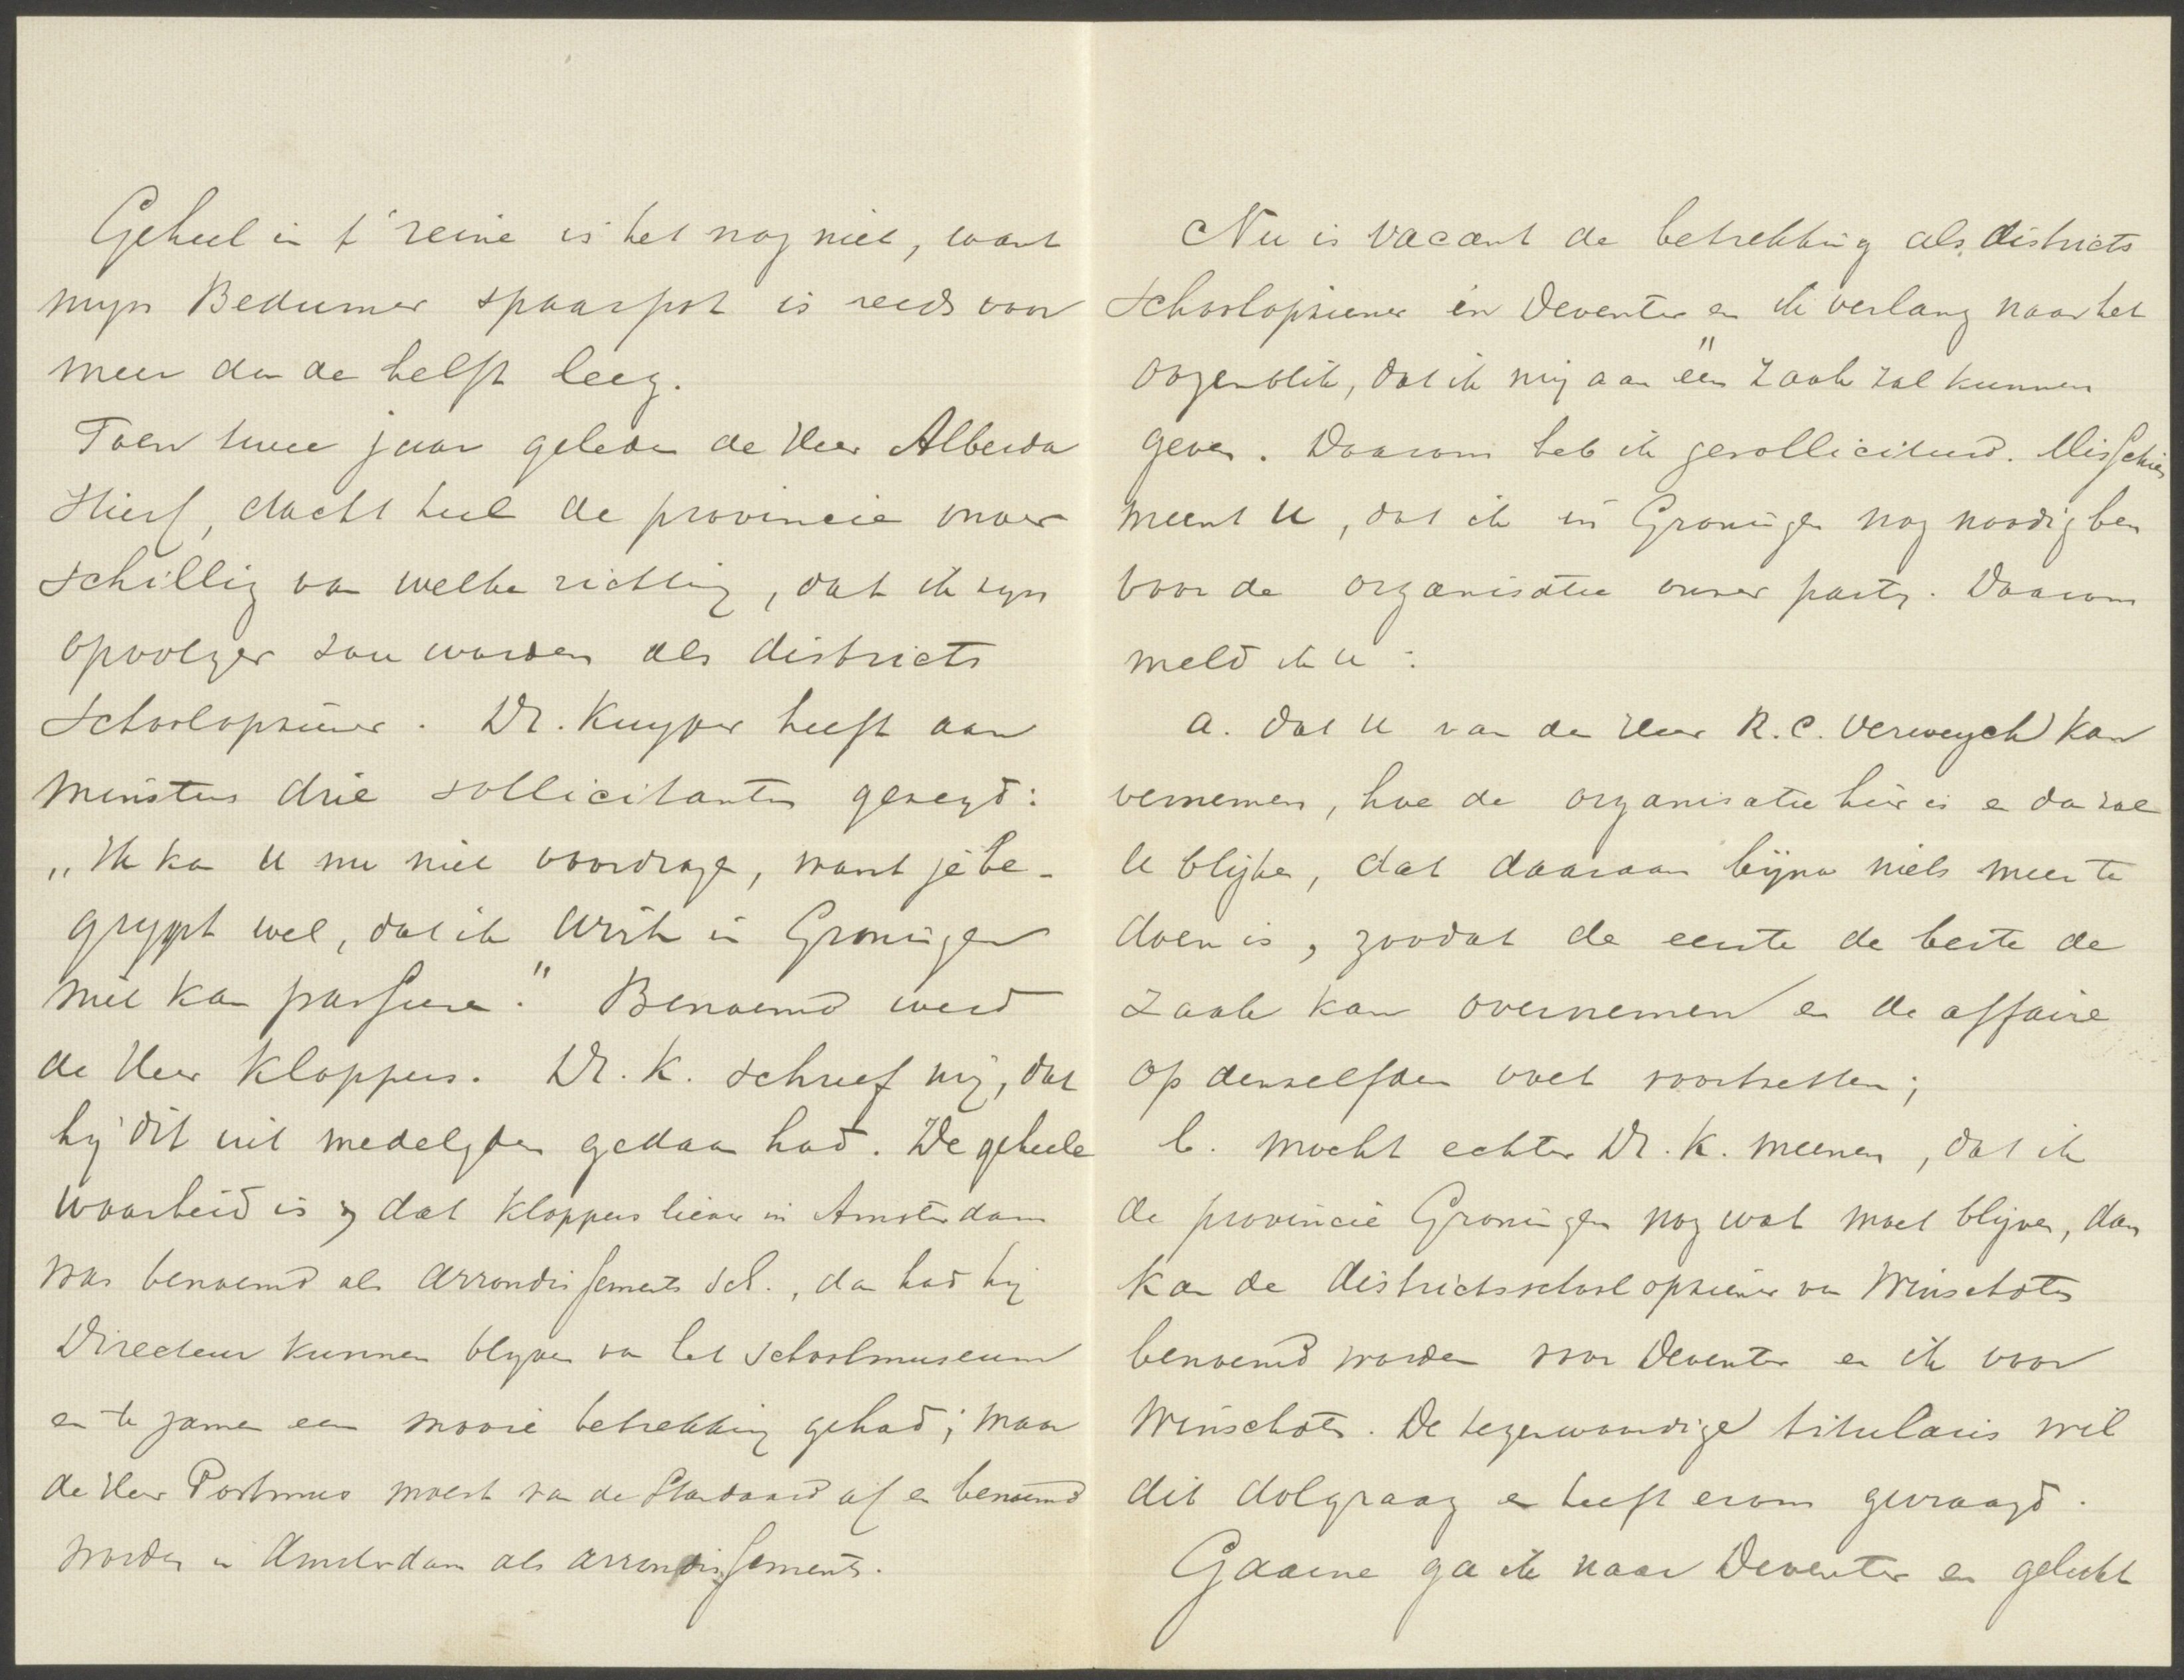 Geheel in t' reine is het nog niet, want
mijn Bedumer spaarpot is reeds voor
meer dan de helft leeg.
Toen twee jaar geleden de Heer Alberda
stierf, dacht heel de provincie onver
schillig van welke richting, dat ik zijn
opvolger zou worden als districts
schoolopziener. Dr. Kuyper heeft aan
minstens drie sollicitanten gezegd:
„Ik kan U nu niet voordragen, want je be-
grypt wel, dat ik Wirtz in Groningen
niet kan passeren." Benoemd werd
de Heer Kloppers. Dr. K. schreef mij, dat
hij dit uit medelijden gedaan had. De geheele
waarheid is, dat Kloppers liever in Amsterdam
was benoemd als arrondissements sch., dan had hij
Directeur kunnen blijven van het schoolmuseum
en te zamen een mooie betrekking gehad; maar
de Heer Postmus moest van de Standaard af en benoemd
worden in Amsterdam als arrondissements.
Nu is vacant de betrekking als districts
schoolopziener in Deventer en ik verlang naar het
oogenblik, dat ik mij aan één zaak zal kunnen
geven. Daarom heb ik gesolliciteerd. Misschien
meent U, dat ik in Groningen nog noodig ben
voor de organisatie onzer partij. Daarom
meld ik U:
a. dat U van den Heer R.C. Verweyck kan
vernemen, hoe de organisatie hier is en dan zal
U blijken, dat daaraan bijna niets meer te
doen is, zoodat de eerste de beste de
zaak kan overnemen en de affaire
op denzelfden voet voortzetten;
b. mocht echter Dr. K. meenen, dat ik
de provincie Groningen nog wat moet blijven, dan
kan de districtsschoolopziener van Winschoten
benoemd worden voor Deventer en ik voor
Winschoten. De tegenwoordige titularis wil
dit dolgraag en heeft erom gevraagd.
Gaarne ga ik naar Deventer en gelukt